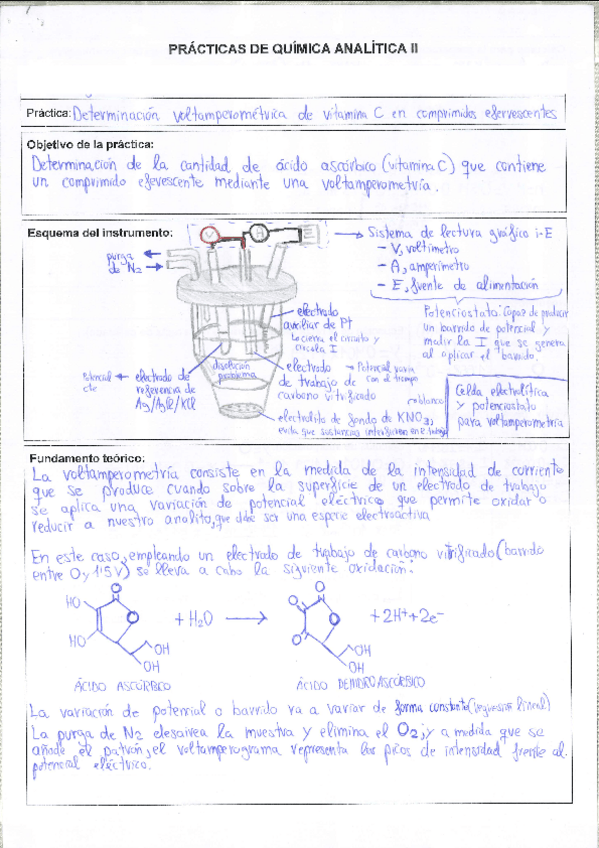 PRÁCTICAS DE QUÍMICA ANALÍTICA II
Práctica: Determinación voltamperométrica de vitamina C en comprimidos efervescentes
Objetivo de la práctica:
Determinación de la cantidad de ácido ascórbico (vitamina C) que contiene
un comprimido efevescente mediante una voltamperometría.
Esquema del instrumento:
V
A
E
→ Sistema de lectura gráfico i-E
- V, voltímetro
- A, amperímetro
- E, fuente de alimentación
purga
de N2
Potenciostato: capaz de producir
un barrido de potencial y
medir la I que se genera
al aplicar el barrido.
electrodo
auxiliar de Pt
Lo cierra el circuito y
circula I
disolución
problema
electrodo → Potencial varía
de trabajo de con el tiempo
carbono vitrificado
Potencial ← electrodo de
cte referencia de
Ag/AgCl/KCl
Celda electrolítica
y potenciostato
para voltamperometría
electrolito de fondo de KNO3,
evita que sustancias interfieran en E. trabajo
Fundamento teórico:
La voltamperometría consiste en la medida de la intensidad de corriente
que se produce cuando sobre la superficie de un electrodo de trabajo
se aplica una variación de potencial eléctrico que permite oxidar o
reducir a nuestro analito, que debe ser una especie electroactiva
En este caso, empleando un electrodo de trabajo de carbono vitrificado (barrido
entre 0 y 1'5 V) se lleva a cabo la siguiente oxidación:
O
HO
O
HO
OH
OH
+ H2O →
O
O
O
O
OH
OH
+ 2H+ + 2e-
ÁCIDO ASCÓRBICO
ÁCIDO DEHIDROASCÓRBICO
La variación de potencial o barrido va a variar de forma constante (lineal)
La purga de N2 desairea la muestra y elimina el O2; y a medida que se
añade el patrón, el voltamperograma representa los picos de intensidad frente al
potencial eléctrico.